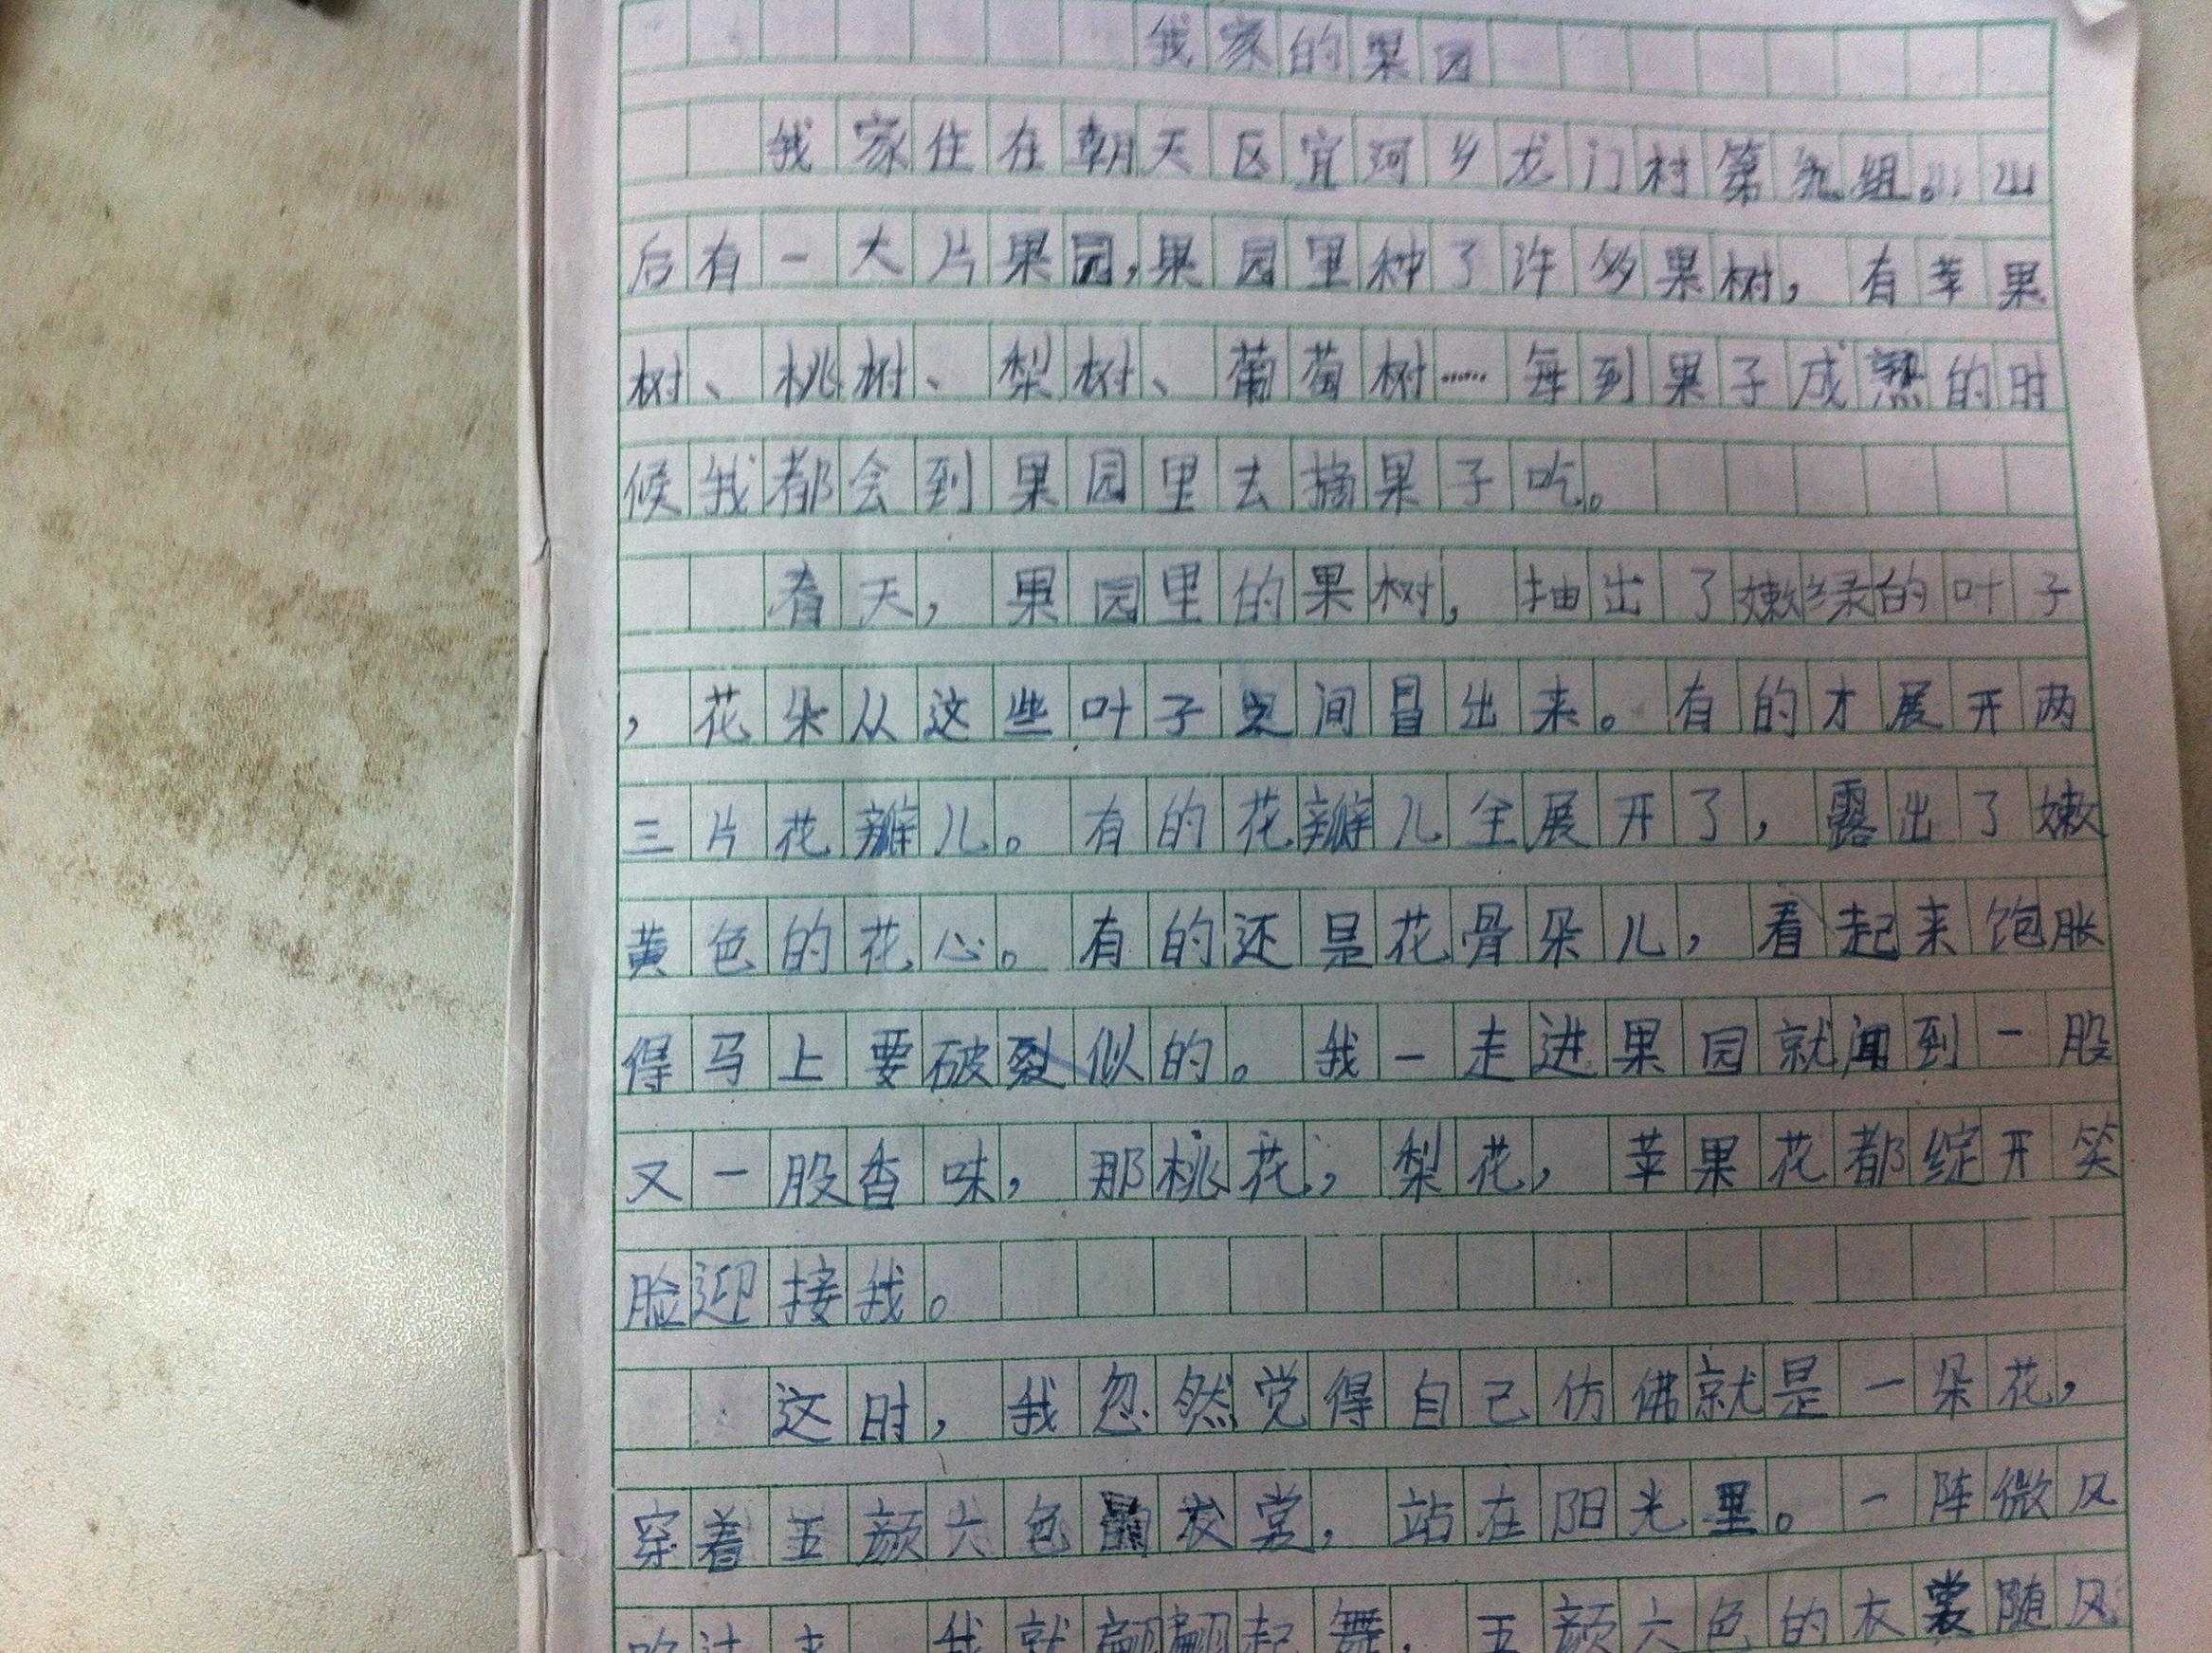 我家的果园
我家住在朝天区宜河乡龙门村第九组。山
后有一大片果园，果园里种了许多果树，有苹果
树、桃树、梨树、葡萄树……每到果子成熟的时
候我都会到果园里去摘果子吃。
春天，果园里的果树，抽出了嫩绿的叶子
，花朵从这些叶子之间冒出来。有的才展开两
三片花瓣儿。有的花瓣儿全展开了，露出了嫩
黄色的花心。有的还是花骨朵儿，看起来饱胀
得马上要破裂似的。我一走进果园就闻到一股
又一股香味，那桃花，梨花，苹果花都绽开笑
脸迎接我。
这时，我忽然觉得自己仿佛就是一朵花，
穿着五颜六色的衣裳，站在阳光里。一阵微风
吹过来，我就翩翩起舞，五颜六色的衣裳随风